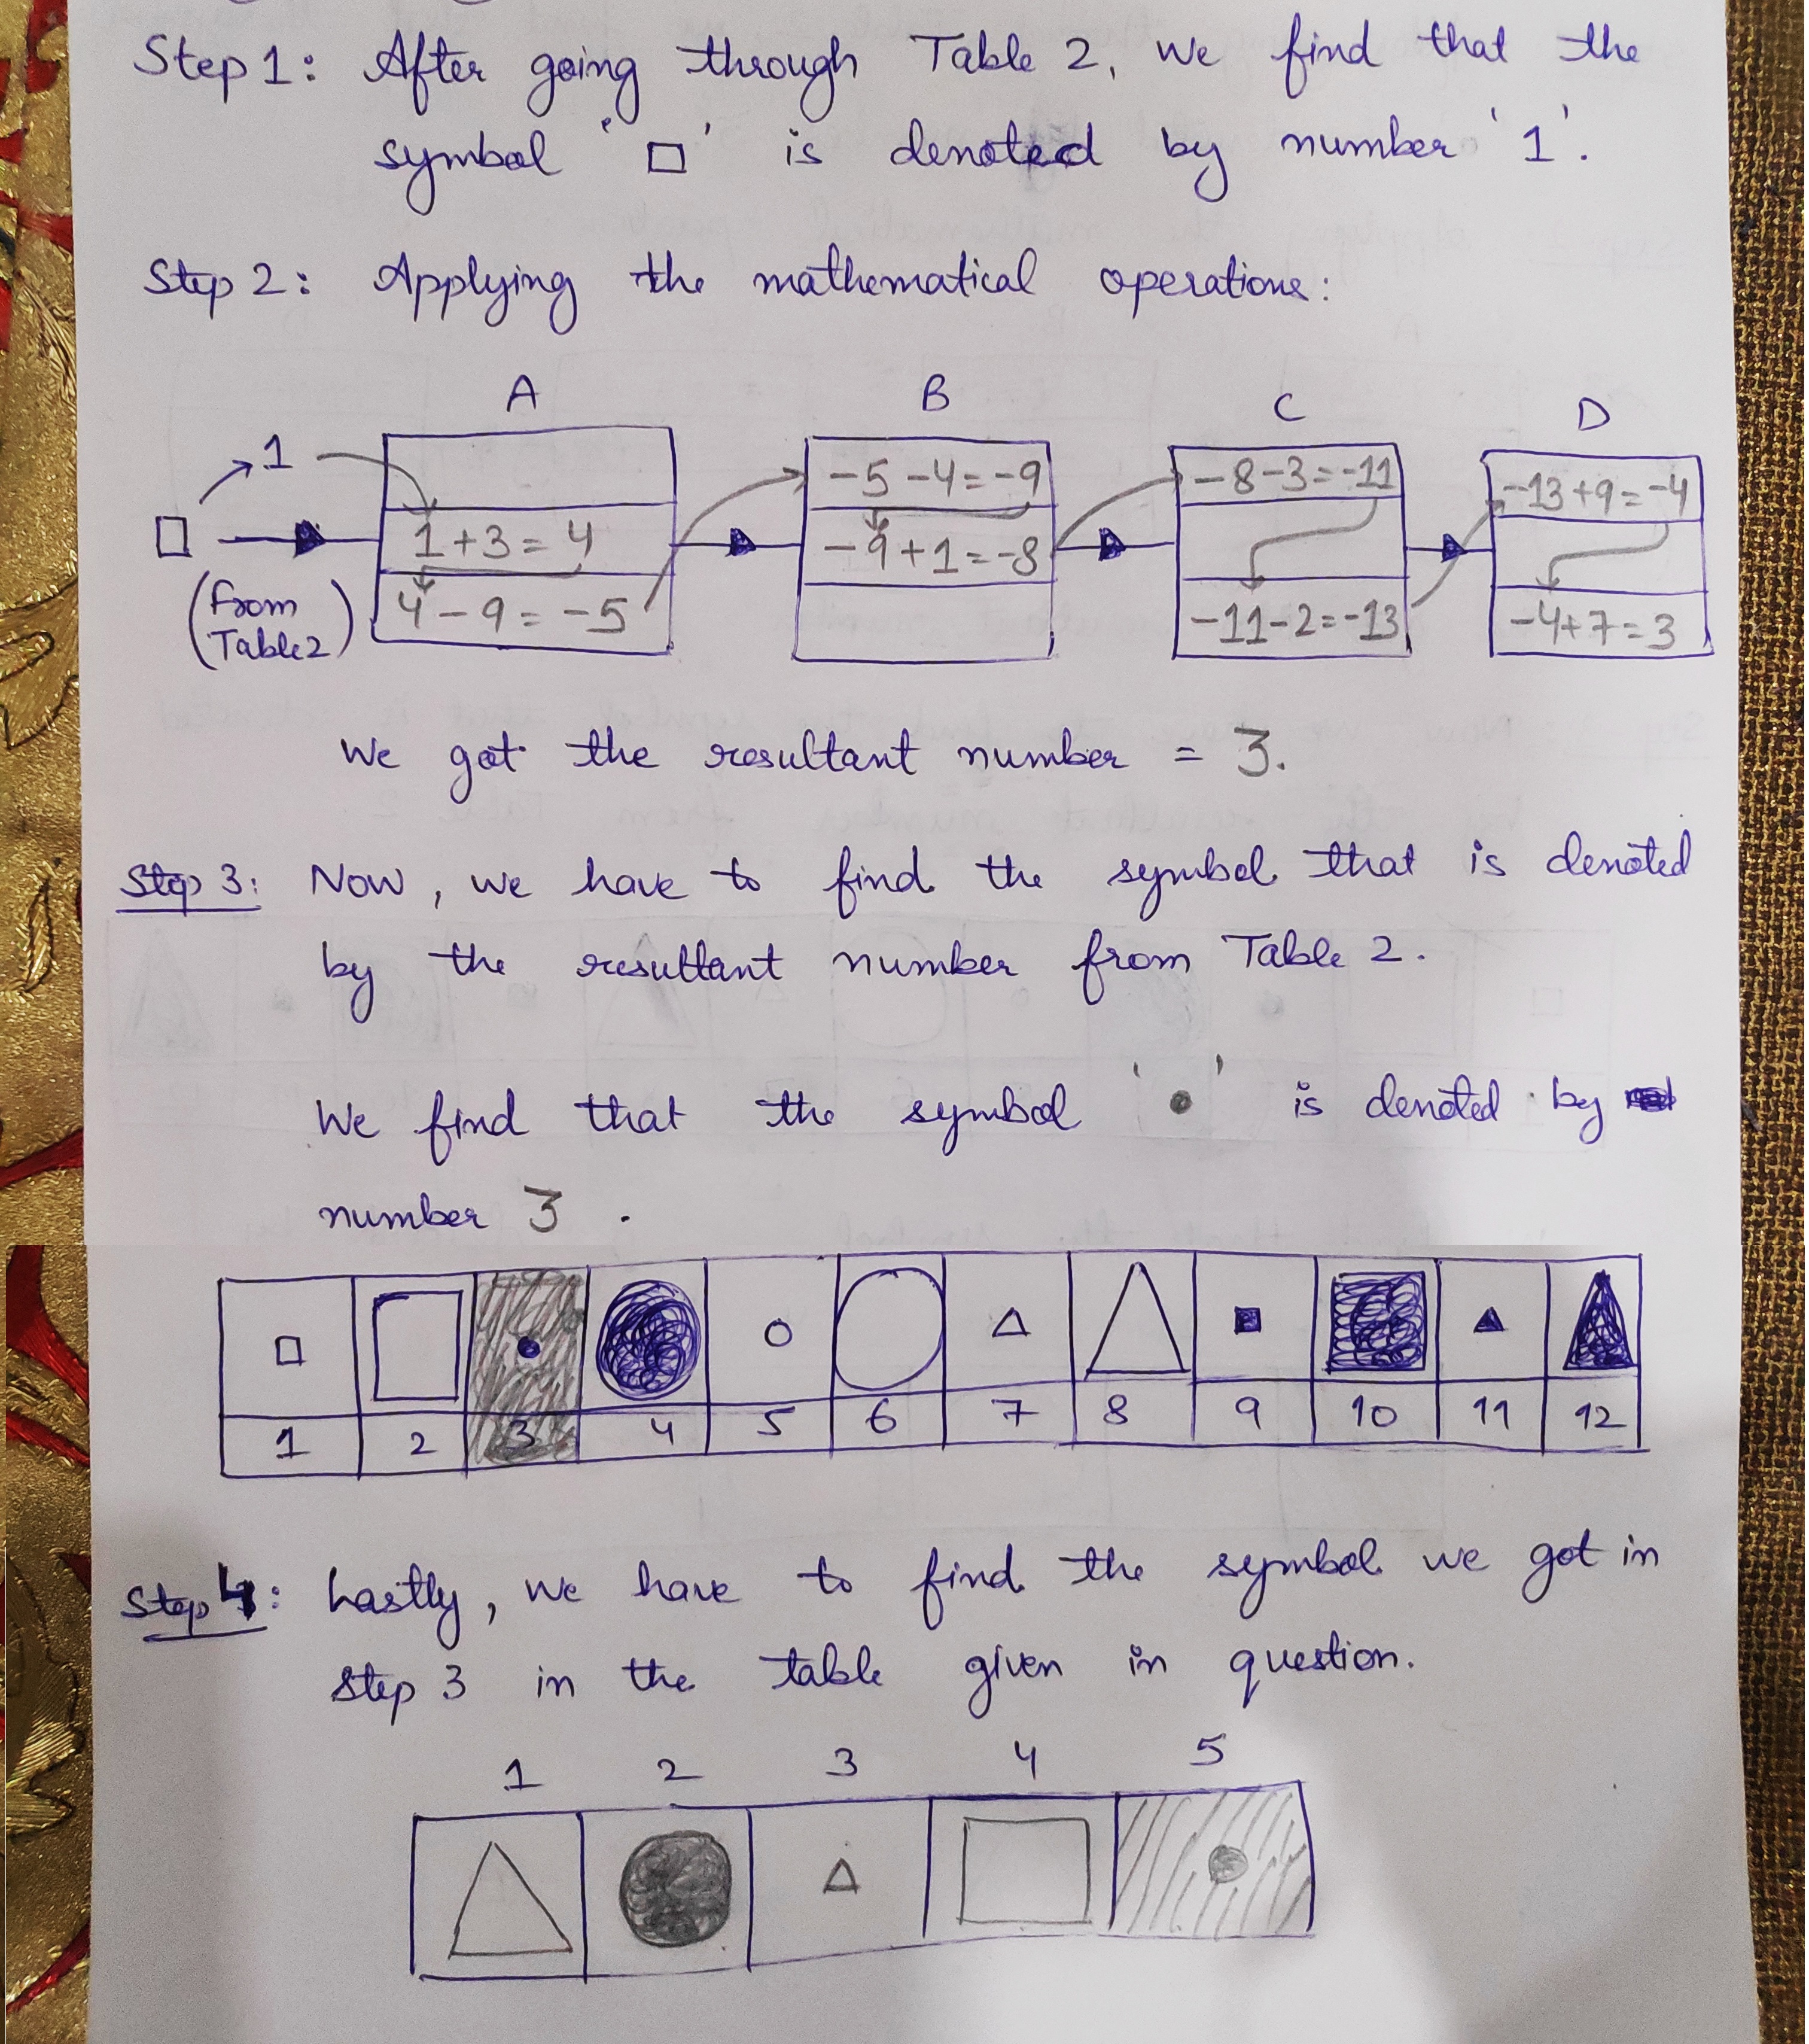 Step 1: After going through Table 2, we find that the
symbol '□' is denoted by number '1'.
Step 2: Applying the mathematical operations:
A B C D
1
-5 -4 = -9
-8 -3 = -11
-13 +9 = -4
□
1 + 3 = 4
-9 + 1 = -8
(from
Table 2)
4 - 9 = -5
-11 -2 = -13
-4 + 7 = 3
We got the resultant number = 3.
Step 3: Now, we have to find the symbol that is denoted
by the resultant number from Table 2.
We find that the symbol '●' is denoted by
number 3.
1 2 3 4 5 6 7 8 9 10 11 12
Step 4: Lastly, we have to find the symbol we got in
step 3 in the table given in question.
1 2 3 4 5